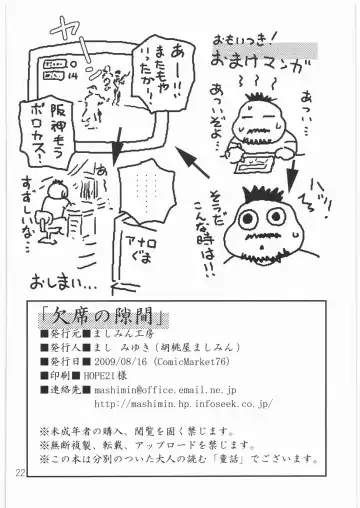 おもいつき!
おまけマンガ
あつい…
あついぞよ…
ハッ!
そうだ
こんな時は!!
ヤーン
0
14
あー!!!
またもや
いったかー!!
阪神もう
ボロカス!
あ
すずしいな…
アナログま
おしまい…
「欠席の隙間」
■発行元■ましみん工房
■発行人■まし みゆき(胡桃屋ましみん)
■発行日■ 2009/08/16 (ComicMarket76)
■印刷■ HOPE21様
■連絡先■ mashimin@office.email.ne.jp
http://mashimin.hp.infoseek.co.jp/
※未成年者の購入、閲覧を固く禁じます。
※無断複製、転載、アップロードを禁じます。
※この本は分別のついた大人の読む「童話」でございます。
22